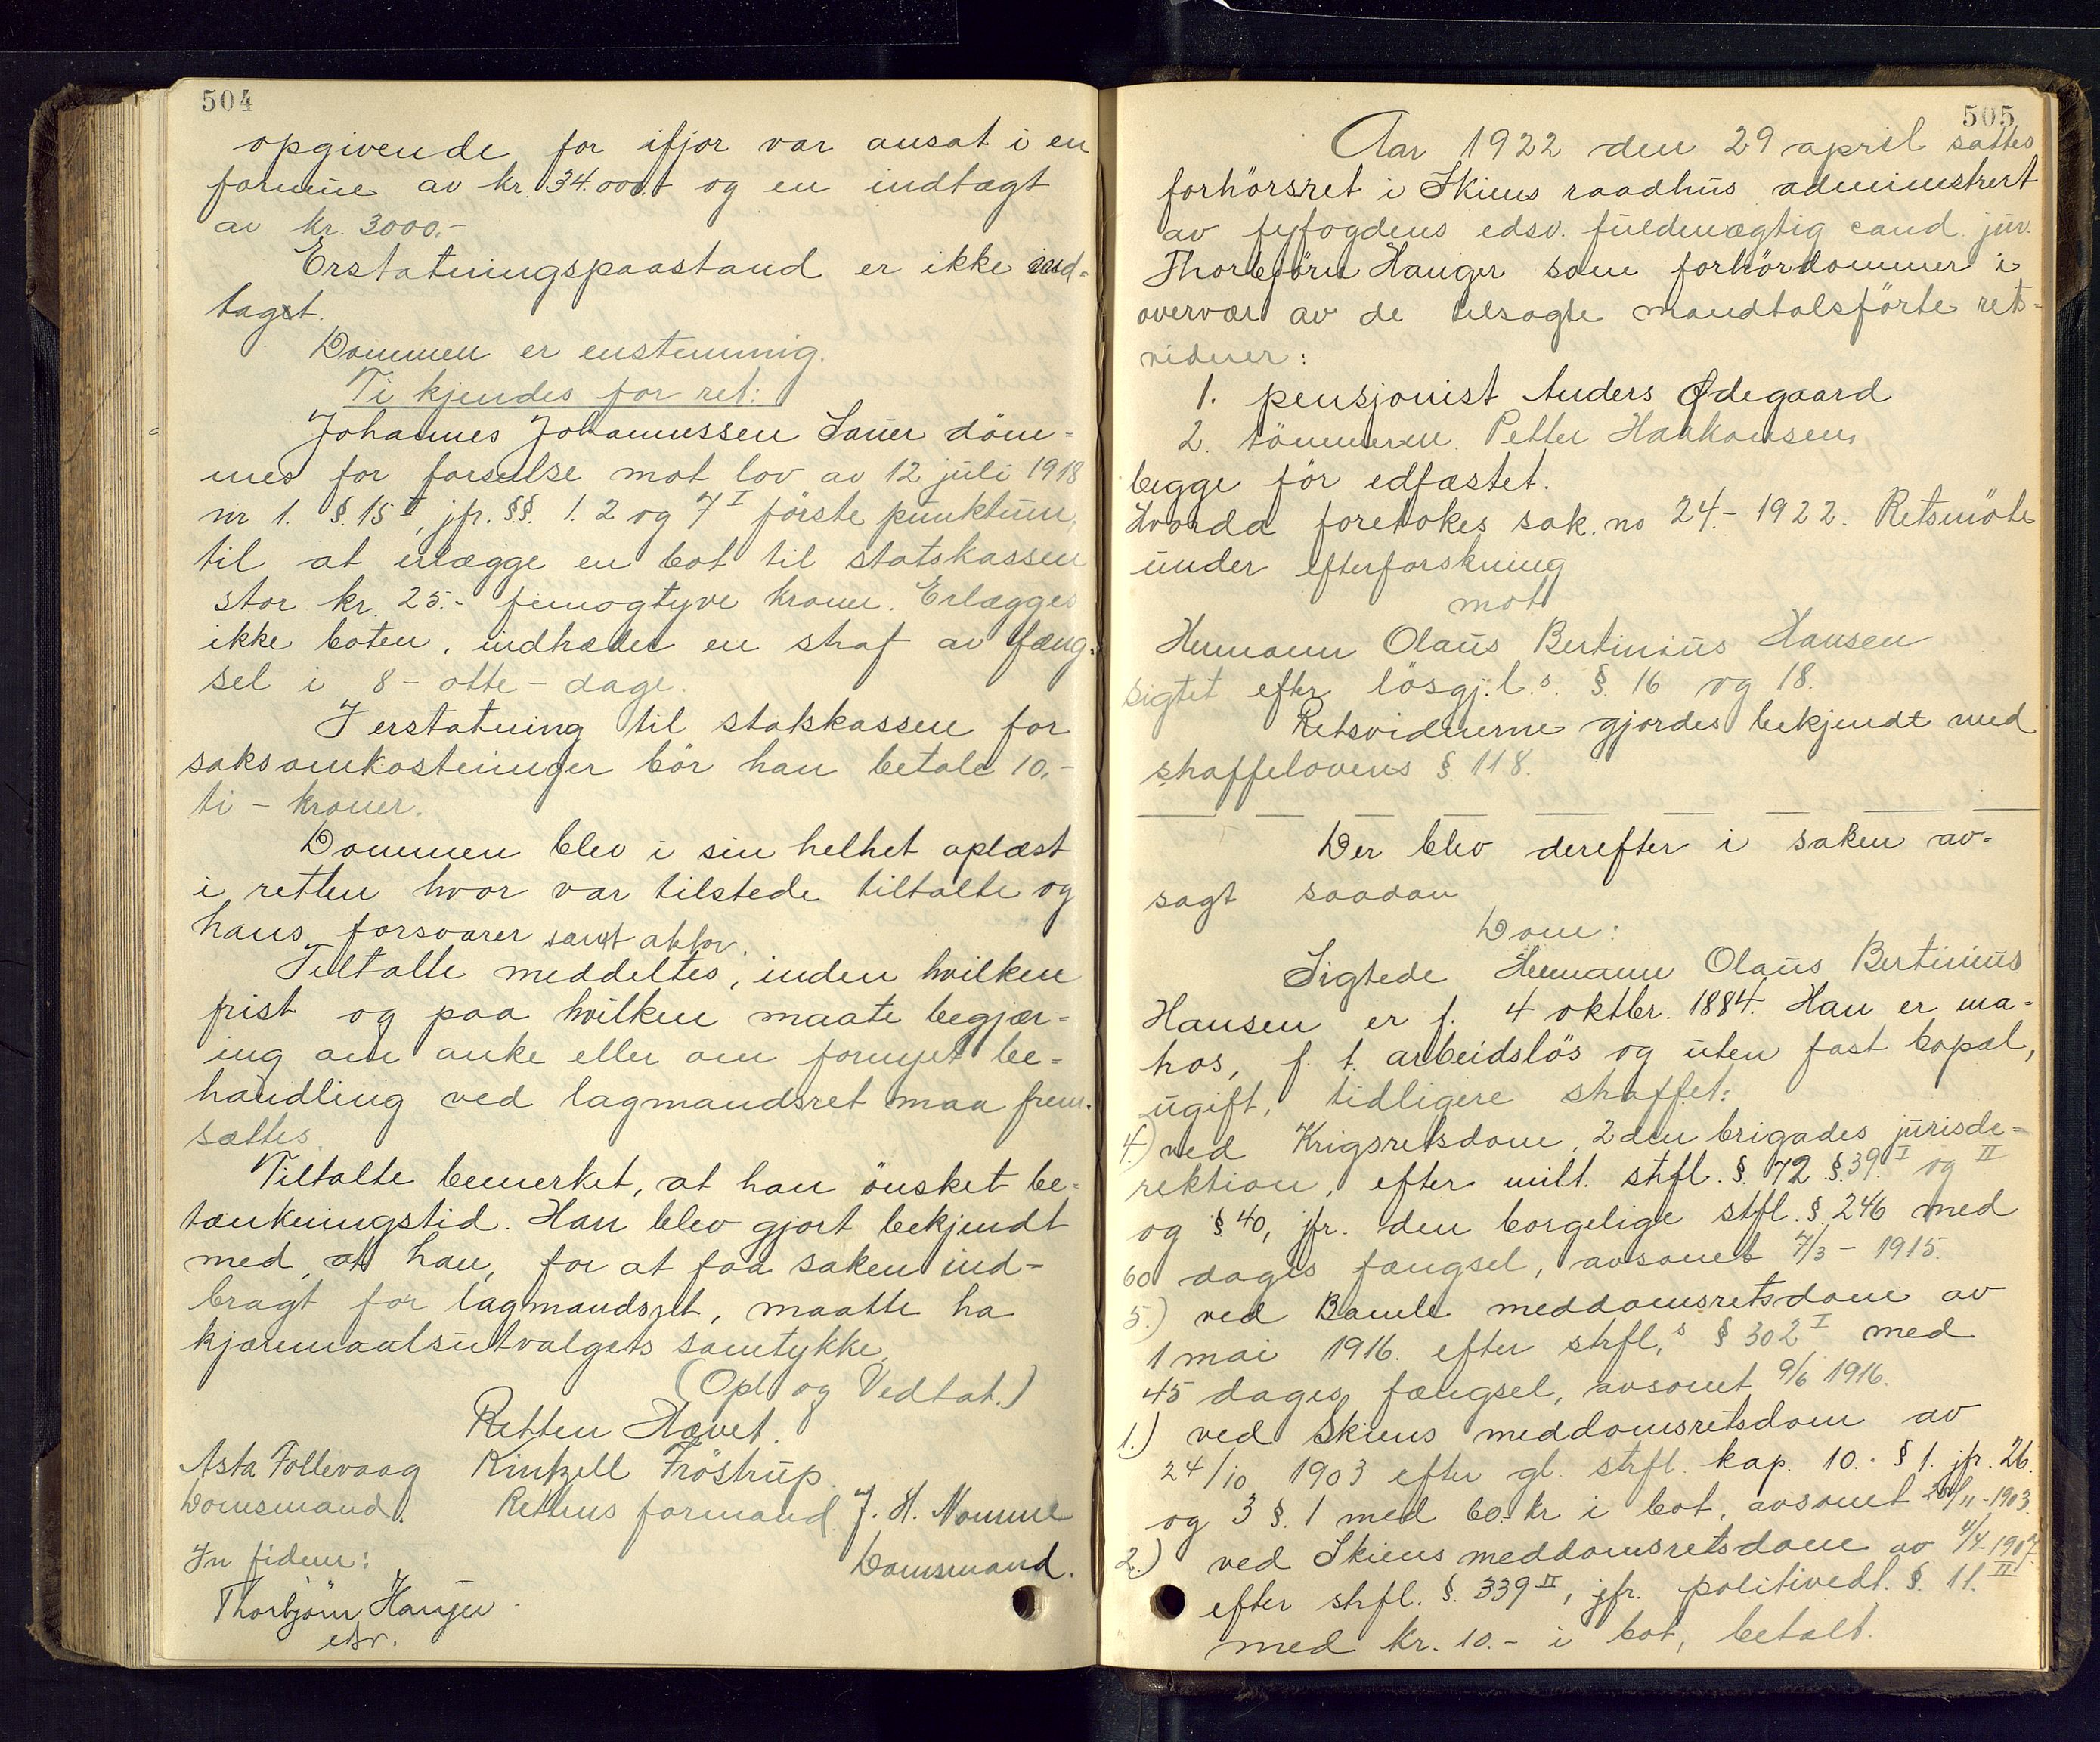 504
opgivende for ifjor var ansat i en
formue av kr. 34.000.- og en indtægt
av kr. 3000.-
Erstatningspaastand er ikke ind-
taget.
Dommen er enstemmig.
Ti kjendes for ret:
Johannes Johannessen Sauer döm-
mes for forseelse mot lov av 12 juli 1918
nr 1. §. 15 I, jfr. §§. 1. 2 og 7 I förste punktum,
til at erlægge en bot til statskassen
stor kr. 25.- femogtyve kroner. Erlægges
ikke boten, indtræder en straf av fæng-
sel i 8 - otte - dage.
I erstatning til statskassen for
saksomkostninger bör han betale 10.-
ti - kroner.
Dommen blev i sin helhet oplæst
i retten hvor var tilstede tiltalte og
hans forsvarer samt aktor.
Tiltalte meddeltes, inden hvilken
frist og paa hvilken maate begjær-
ing om anke eller om fornyet be-
handling ved lagmandsret maa frem-
sættes.
Tiltalte bemerket, at han önsket be-
tænkningstid. Han blev gjort bekjendt
med, at han, for at faa saken ind-
bragt for lagmandsret, maatte ha
kjæremaalsutvalgets samtykke.
(Opl og Vedtat.)
Retten Hævet.
Asta Follevaag Kintzell Fröstrup.
Domsmand. Rettens formand. J. H. Nomme
In fidem: Domsmand.
Thorbjörn Hauger
edsv.
505
Aar 1922 den 29 april sattes
forhörsret i Skiens raadhus administrert
av byfogdens edsv. fuldmægtig cand. jur.
Thorbjörn Hauger som forhördommer i
overvær av de tilsagte mandtalsförte rets-
vidner:
1. pensjonist Anders Ødegaard
2. tömmerm. Petter Haakonsen
begge för edfæstet.
Hvorda foretokes sak. no 24.- 1922. Retsmöte
under efterforskning
mot
Hermann Olaus Bertinius Hansen
sigtet efter lösgj.l.s. §. 16 og 18.
Retsvidnerne gjordes bekjendt med
straffelovens §. 118.
Der blev derefter i saken av-
sagt saadan
Dom:
Sigtede Hermann Olaus Bertinius
Hansen er f. 4 oktbr. 1884. Han er ma-
tros, f. t. arbeidslös og uten fast bopæl,
ugift, tidligere straffet:
4.) ved Krigsretsdom, 2den brigades jurisde-
rektion, efter milt. strfl. §. 72 §. 39. I og II
og § 40, jfr. den borgelige stfl. §. 246 med
60 dages fængsel, avsonet 7/3 - 1915.
5.) ved Bamle meddomsretsdom av
1 mai 1916. efter strfl.s § 302 I med
45 dages fængsel, avsonet 9/6 1916.
1.) ved Skiens meddomsretsdom av
24/10 1903 efter gl. strfl. kap. 10. § 1. jfr. 26.
og 3 §. 1 med 60. kr i bot, avsonet /11-1903.
2.) ved Skiens meddomsretsdom av 4/4-1907.
efter strfl. §. 339 II, jfr. politivedt. §. 11. II
med kr. 10.- i bot, betalt.